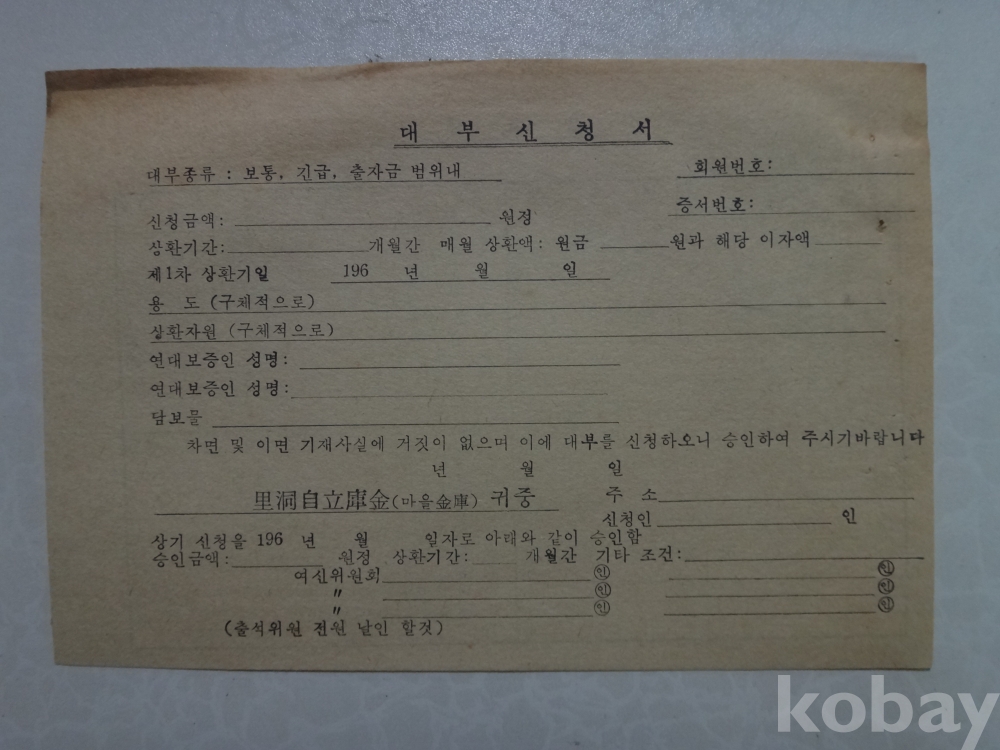 대 부 신 청 서
대부종류 : 보통, 긴급, 출자금 범위내
회원번호:
증서번호:
신청금액: 원정
상환기간: 개월간 매월 상환액: 원금 원과 해당 이자액
제1차 상환기일 196 년 월 일
용 도 (구체적으로)
상환자원 (구체적으로)
연대보증인 성명:
연대보증인 성명:
담보물
차면 및 이면 기재사실에 거짓이 없으며 이에 대부를 신청하오니 승인하여 주시기바랍니다
년 월 일
里洞自立庫金(마을金庫) 귀중
주 소
신청인 인
상기 신청을 196 년 월 일자로 아래와 같이 승인함
승인금액: 원정 상환기간: 개월간 기타 조건:
여신위원회 ㊞ ㊞
〃 ㊞ ㊞
〃 ㊞ ㊞
(출석위원 전원 날인 할것)
kobay